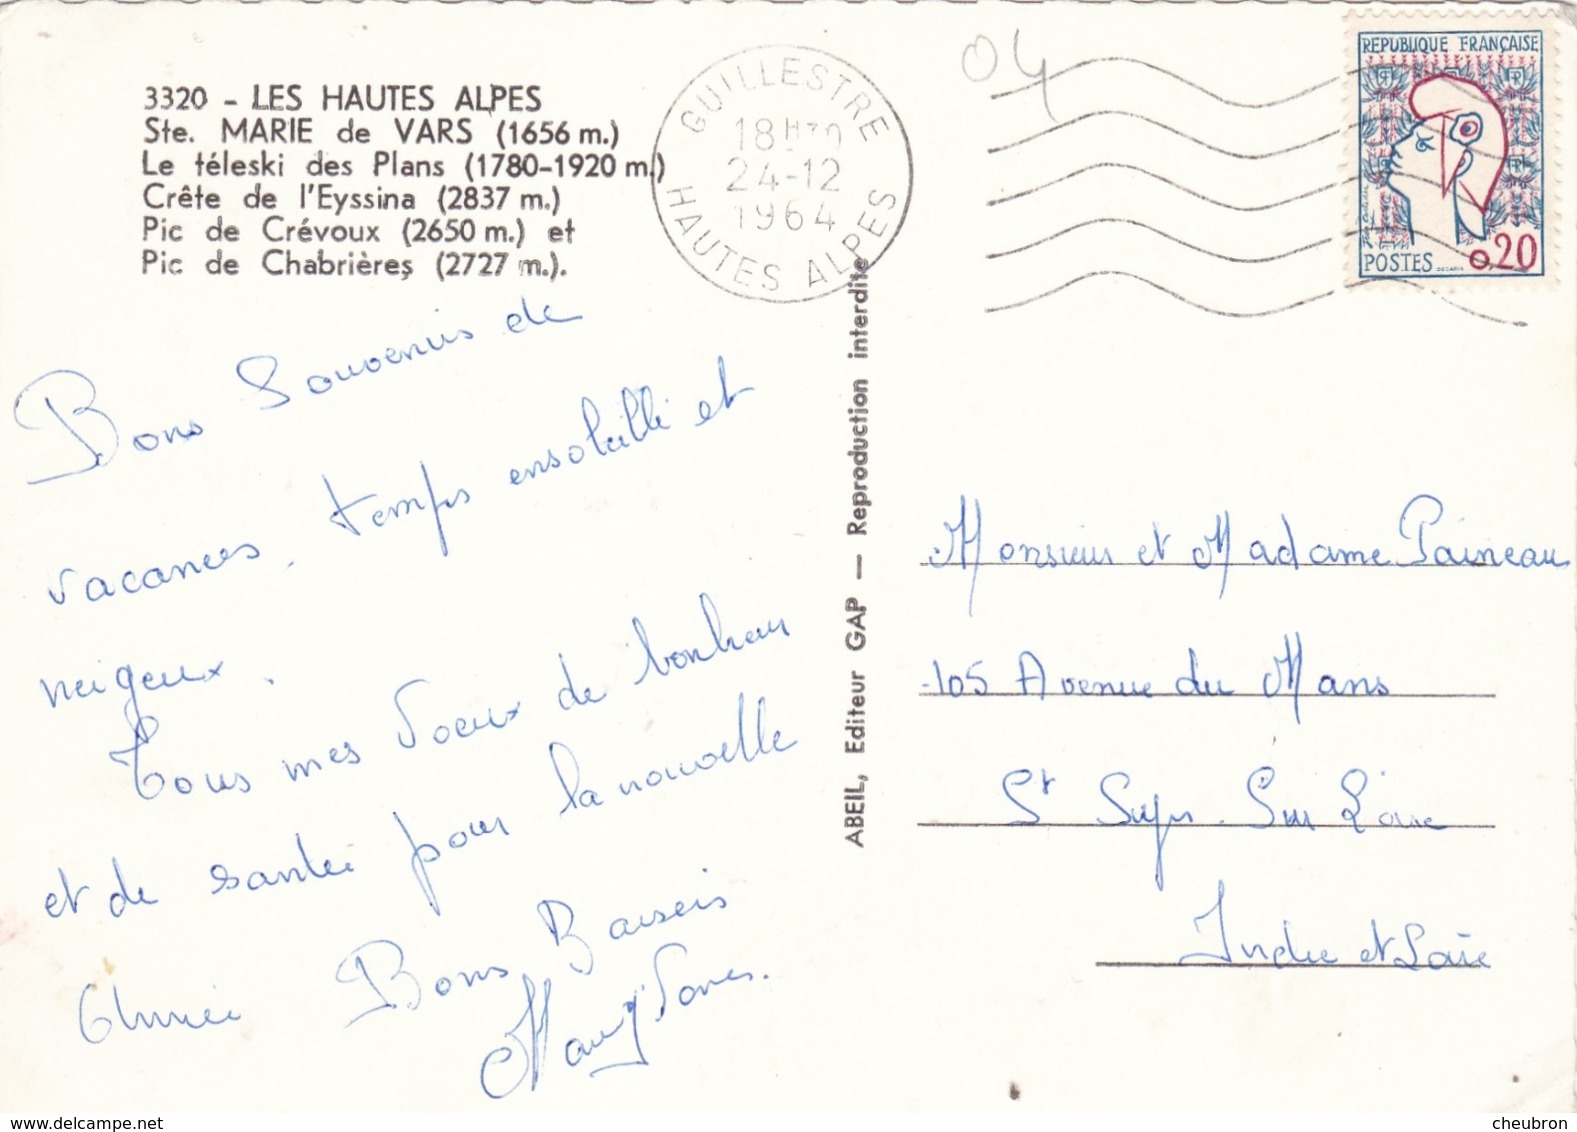 3320 - LES HAUTES ALPES
Ste. MARIE de VARS (1656 m.)
Le téleski des Plans (1780-1920 m.)
Crête de l'Eyssina (2837 m.)
Pic de Crévoux (2650 m.) et
Pic de Chabrières (2727 m.).
GUILLESTRE
18H30
24-12
1964
HAUTES ALPES
04
REPUBLIQUE FRANÇAISE
POSTES
0,20
Bons Souvenirs de
vacances, temps ensoleillé et
neigeux.
Tous mes Voeux de bonheur
et de santé pour la nouvelle
Année Bons Baisers
ABEIL, Editeur GAP — Reproduction interdite
Monsieur et Madame Paineau
105 Avenue du Mans
St Cyr Sur Loire
Indre et Loire
www.delcampe.net
cheubron